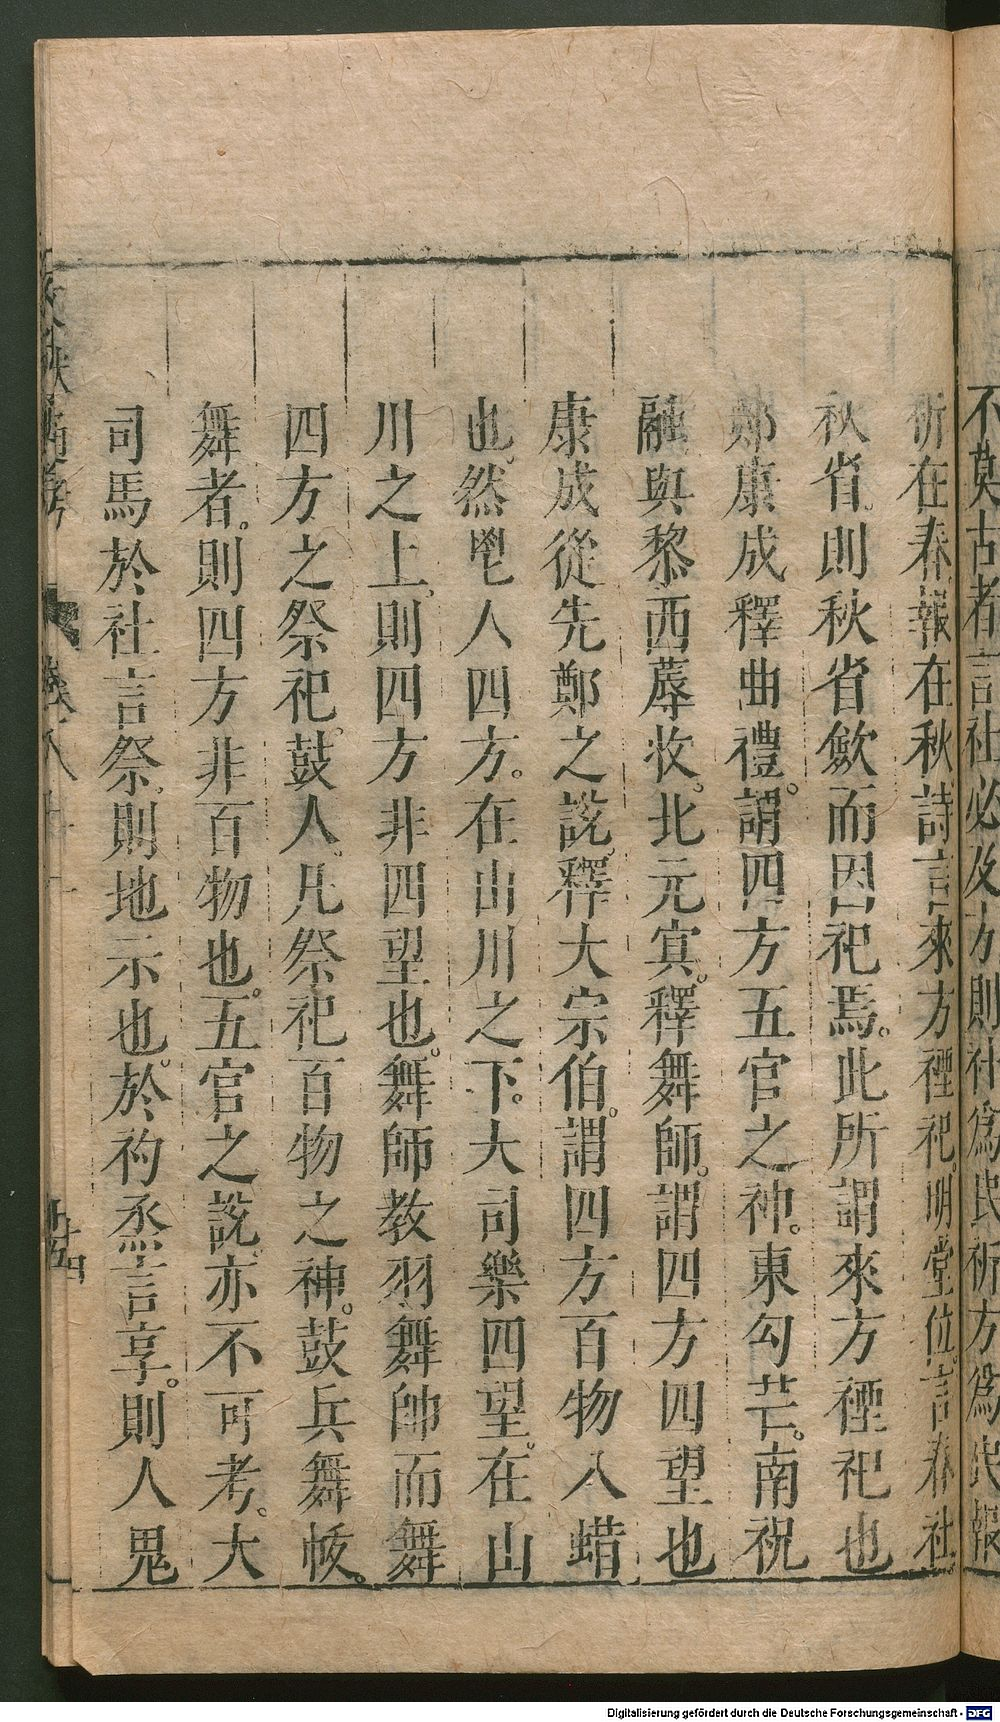 不莫古者言社必及方則社為民祈方為民報
祈在春報在秋詩言來方禋祀。明堂位言春社。
秋省。則秋省斂而因祀焉。此所謂來方禋祀也
鄭康成釋曲禮。謂四方五官之神。東勾芒。南祝
融與黎西蓐收。北元冥。釋舞師。謂四方四望也
康成從先鄭之說釋大宗伯。謂四方百物八蜡
也。然鬯人四方。在山川之下。大司樂四望。在山
川之上。則四方非四望也。舞師教羽舞帥而舞
四方之祭祀。鼓人。凡祭祀百物之神。鼓兵舞帗。
舞者。則四方非百物也。五官之說。亦不可考。大
司馬於社言祭。則地示也。於礿烝言享。則人鬼
文獻通考
卷八十
Digitalisierung gefördert durch die Deutsche Forschungsgemeinschaft - DFG